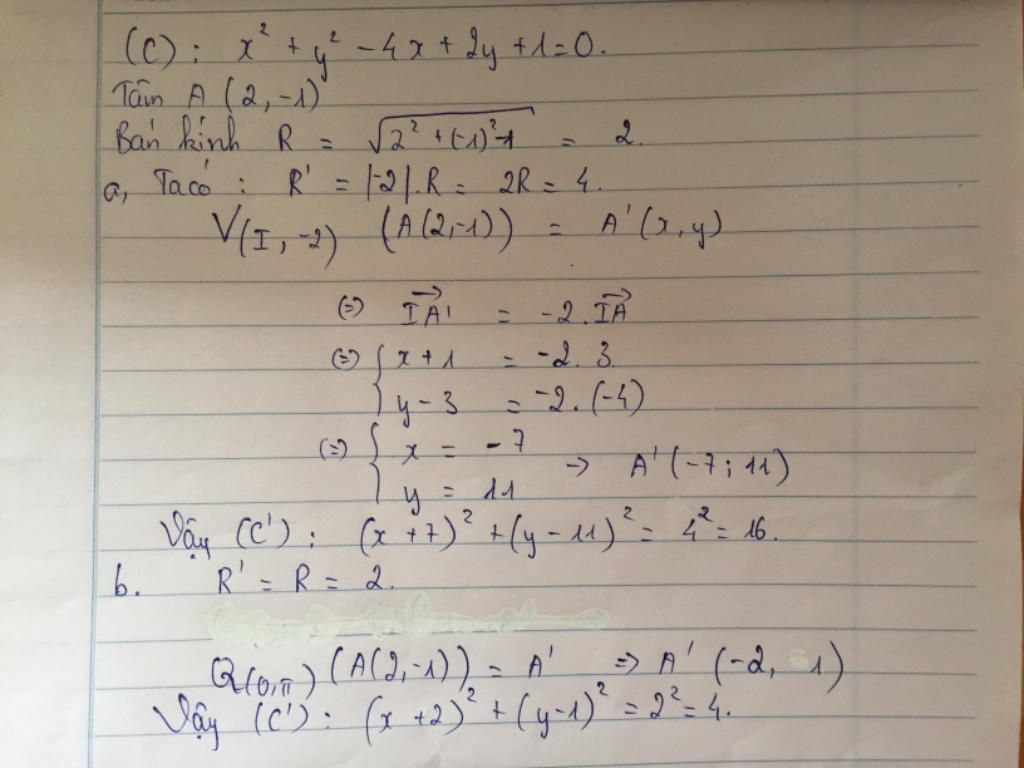 (C) : x² + y² - 4x + 2y + 1 = 0.
Tâm A (2, -1)
Bán kính R = √(2² + (-1)² - 1) = 2.
a, Ta có : R' = |-2|.R = 2R = 4.
V(I, -2) (A(2,-1)) = A'(x,y)
(=) IA'→ = -2.IA→
(=) { x + 1 = -2. 3
y - 3 = -2. (-4)
(=) { x = -7
y = 11 → A'(-7; 11)
Vậy (C') : (x + 7)² + (y - 11)² = 4² = 16.
b. R' = R = 2.
Q(O,π) (A(2,-1)) = A' => A' (-2, 1)
Vậy (C') : (x + 2)² + (y - 1)² = 2² = 4.